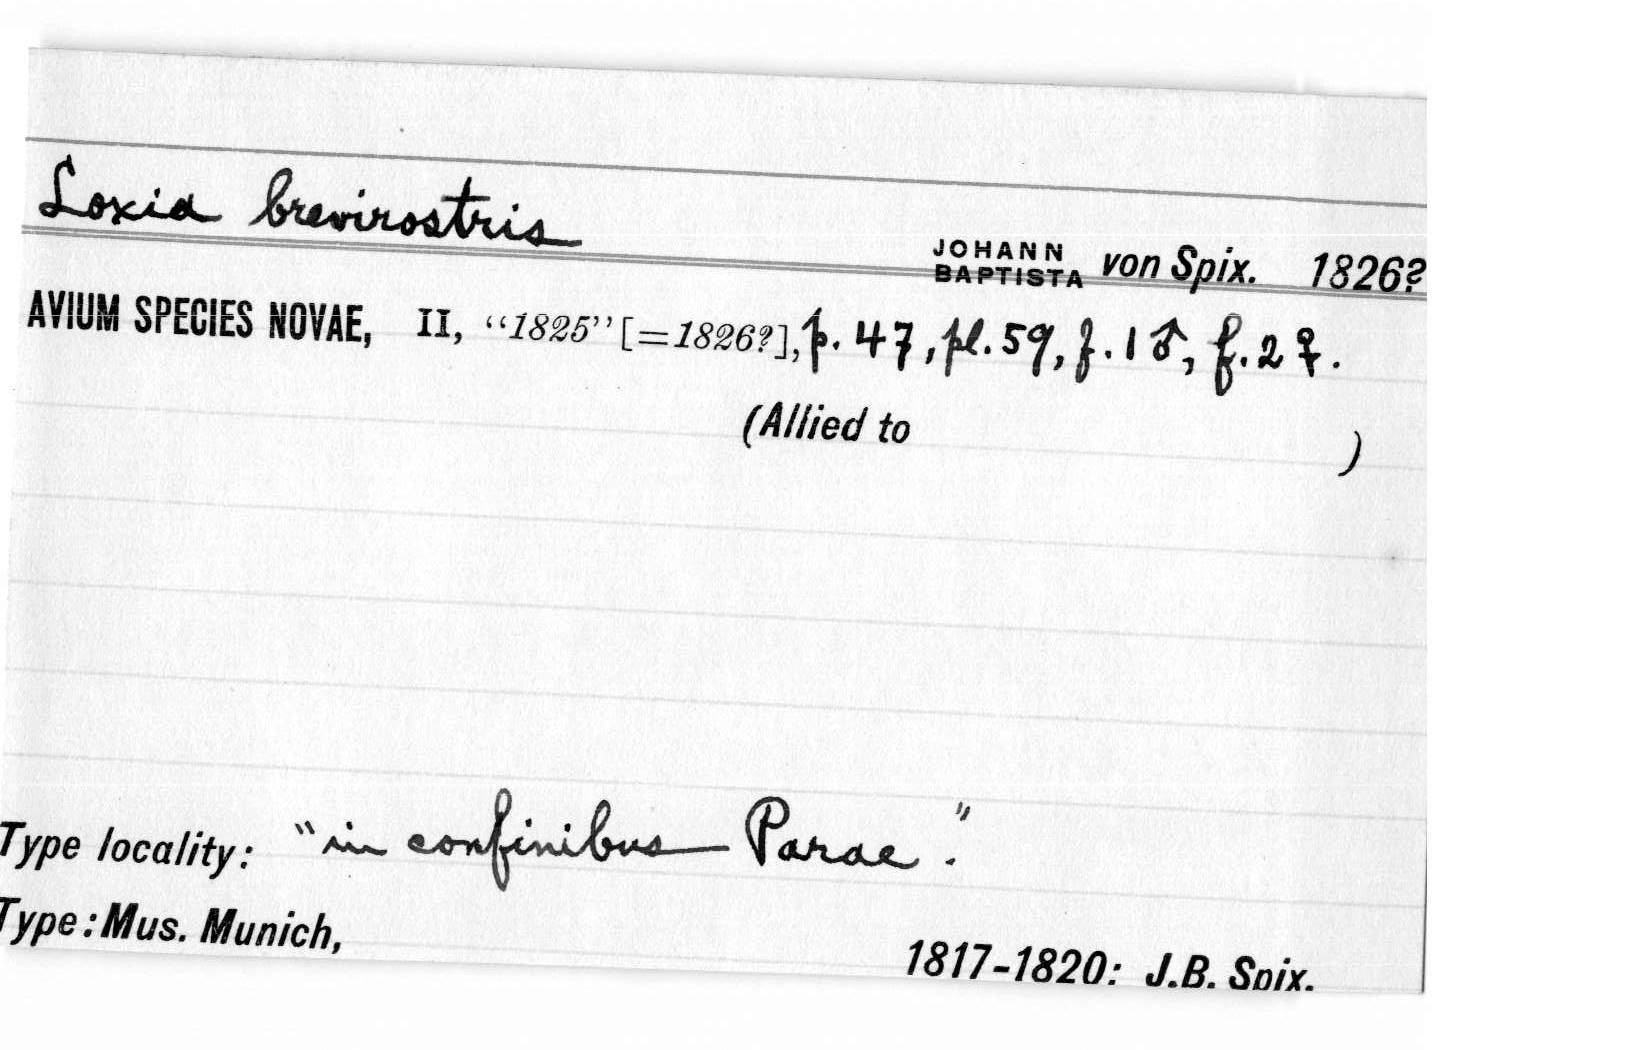 Loxia brevirostris
JOHANN BAPTISTA von Spix. 1826?
AVIUM SPECIES NOVAE, II, “1825” [=1826?], p. 47, pl. 59, f. 1 ♂, f. 2 ♀.
(Allied to )
Type locality: "in confinibus Parae".
Type: Mus. Munich,
1817-1820: J.B. Spix.